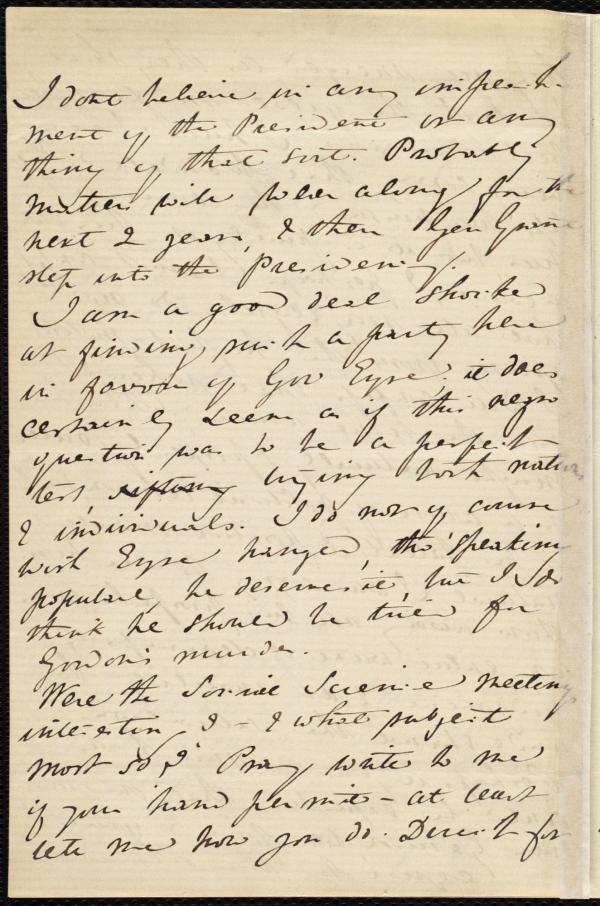 I dont believe in any impeach-
ment of the President or any
thing of that sort. Probably
matters will wear along for the
next 2 years, & then Gen Grant
step into the Presidency.
I am a good deal shocked
at finding such a party here
in favour of Gov Eyre, it does
certainly seem as if this negro
question was to be a perfect
test, sifting trying both nations
& individuals. I do not of course
wish Eyre hanged, tho' speaking
populace, he deserves it, but I do
think he should be tried for
Gordon's murder.
Were the Social Science meetings
interesting? - & what subject
most so? Pray write to me
if your hand permits - at least
let me how you do. Direct for